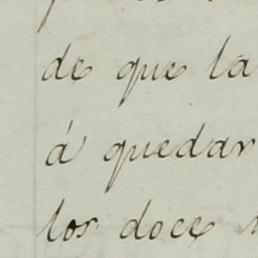 de que la
á quedar
los doce